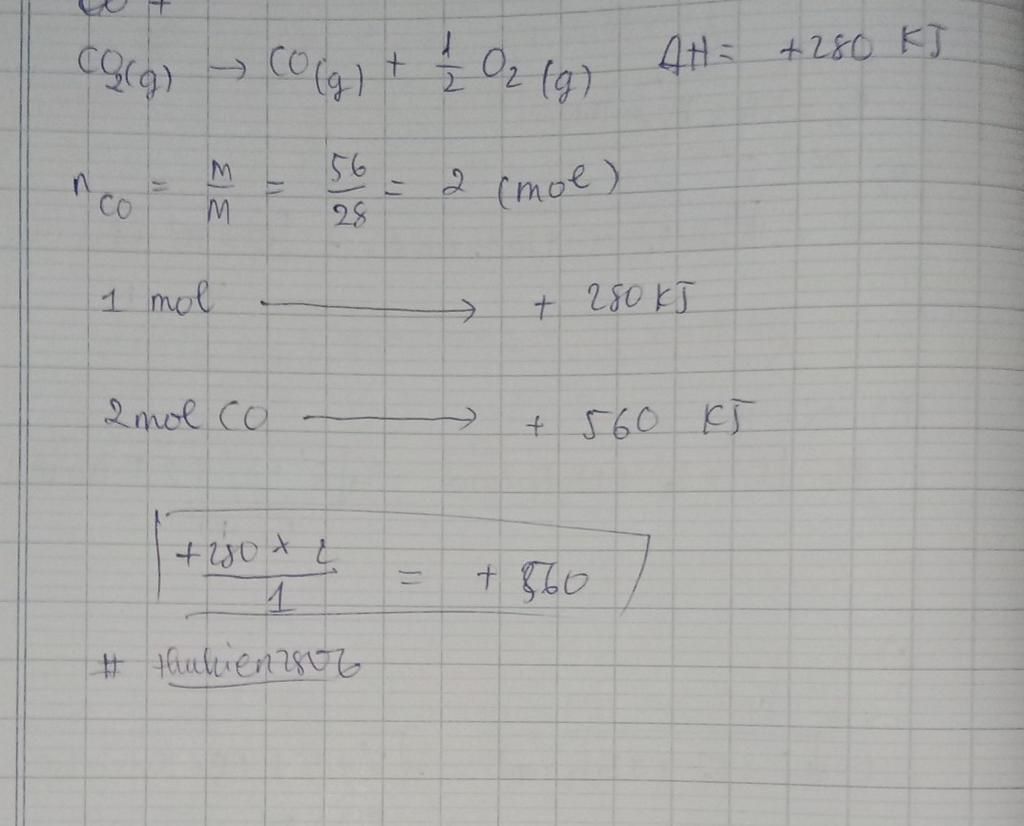 CO₂(g) → CO(g) + 1/2 O₂ (g) ΔH = +280 KJ
n CO = m/M = 56/28 = 2 (mol)
1 mol → + 280 KJ
2 mol CO → + 560 KJ
+280 × 2 / 1 = + 560
#